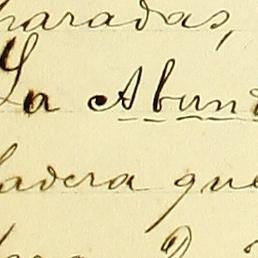 haradas,
La Abund
ladera que